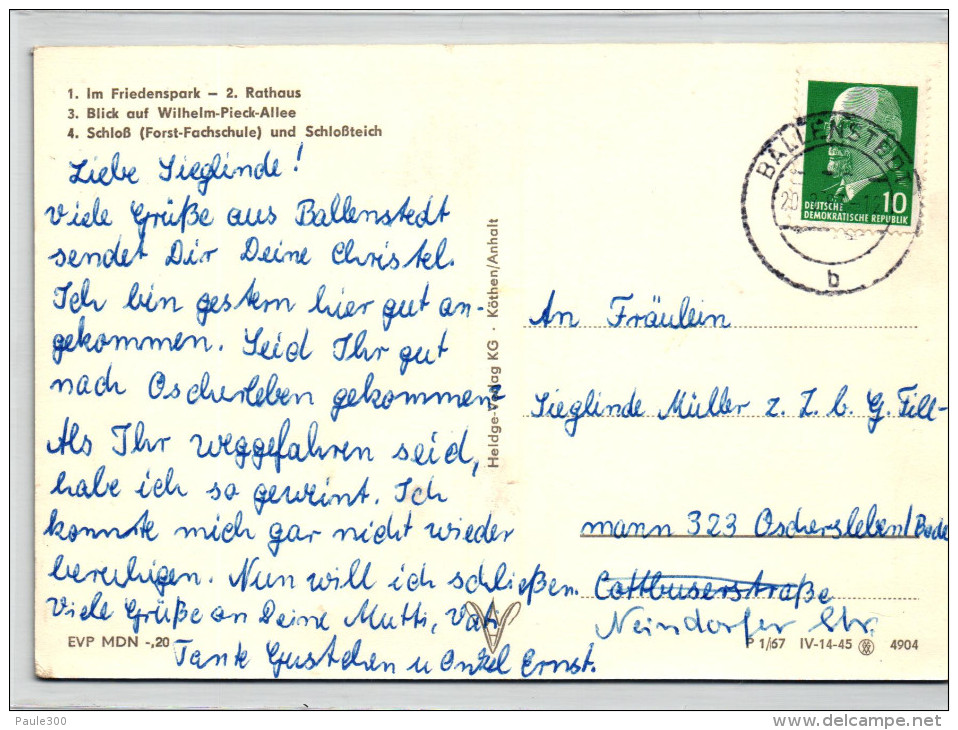 1. Im Friedenspark – 2. Rathaus
3. Blick auf Wilhelm-Pieck-Allee
4. Schloß (Forst-Fachschule) und Schloßteich
Liebe Sieglinde!
Viele Grüße aus Ballenstedt
sendet Dir Deine Christel.
Ich bin gestern hier gut an-
gekommen. Seid Ihr gut
nach Oschersleben gekommen?
Als Ihr weggefahren seid,
habe ich so geweint. Ich
konnte mich gar nicht wieder
beruhigen. Nun will ich schließen.
Viele Grüße an Deine Mutti, Vati
Tante Gustchen u Onkel Ernst.
EVP MDN -,20
Heldge-Verlag KG · Köthen/Anhalt
BALLENSTEDT
b
10
DEUTSCHE
DEMOKRATISCHE REPUBLIK
An Fräulein
Sieglinde Müller z. Z. b. G. Fill-
mann 323 Oschersleben/Bode
Cottbuserstraße
Neindorfer Str.
P 1/67 IV-14-45 4904
Paule300
www.delcampe.net